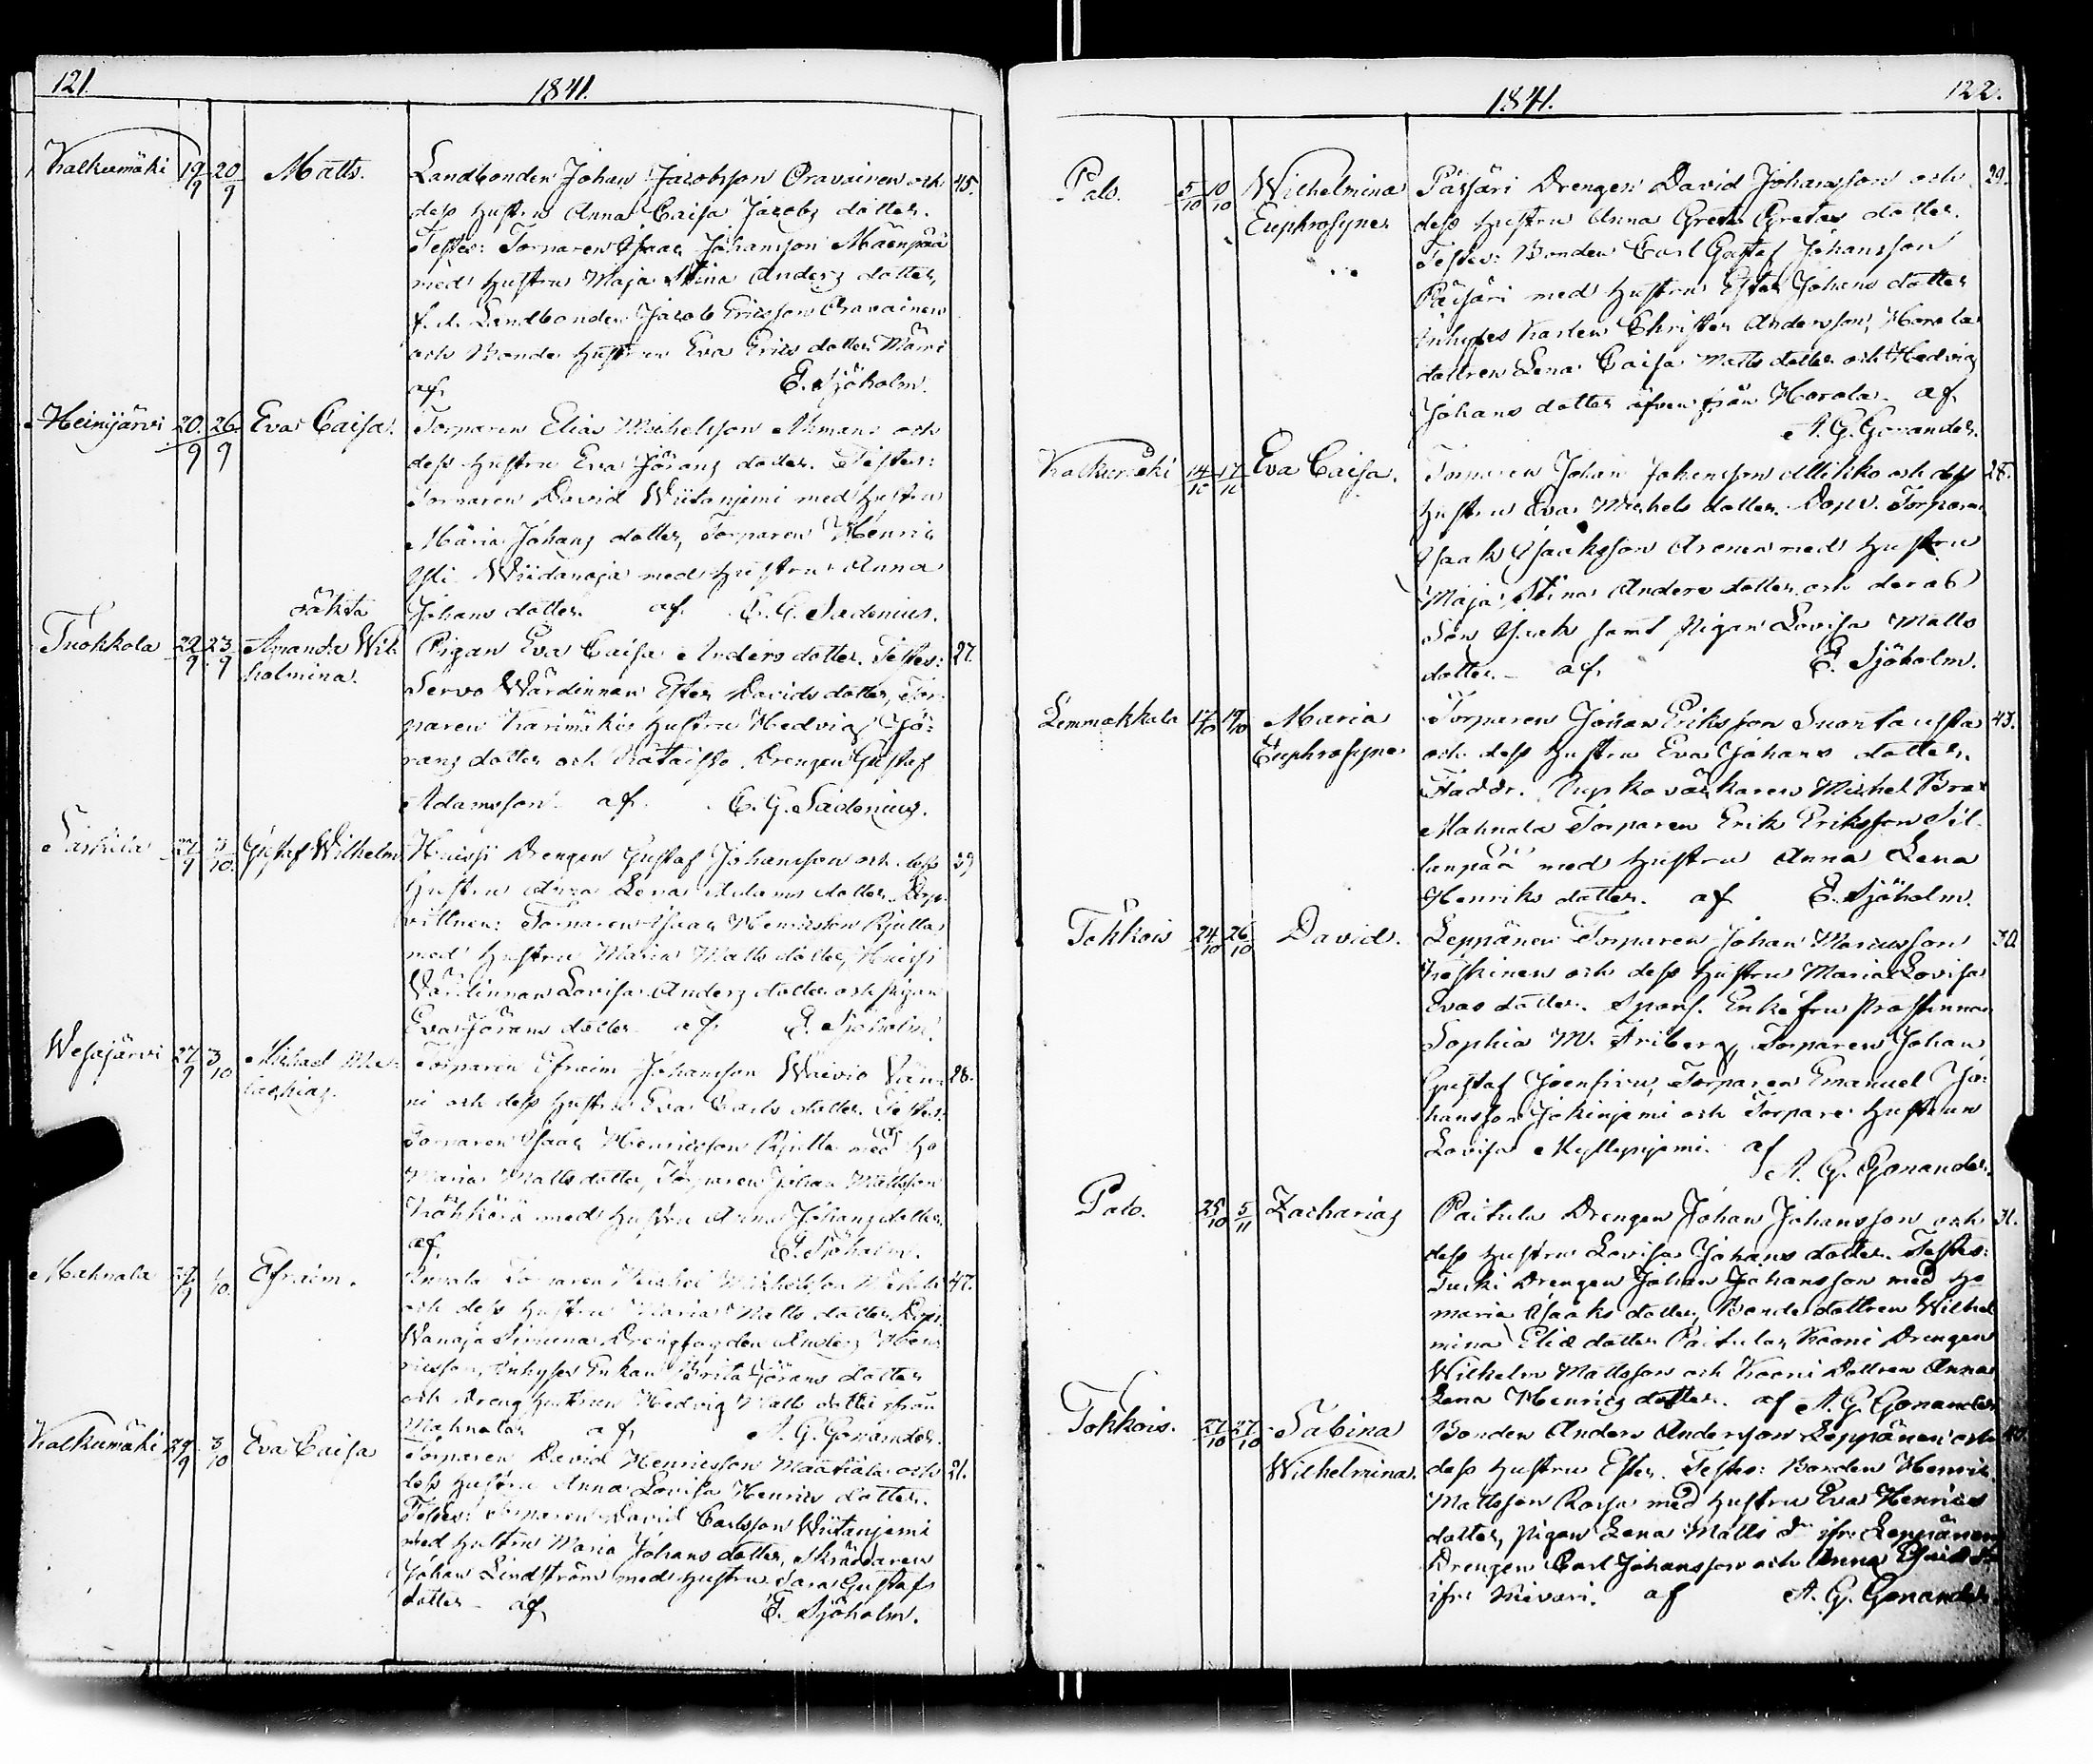 121.
1841.
Kalkumäki 19/9 20/9 Matts. Landbonden Johan Jacobsson Oravainen och 45.
dess hustru Anna Caisa Jacobs dotter.
Testes: Torparen Isaac Johansson Mäenpää
med hustru Maja Stina Anders dotter,
f. d. Landbonden Jacob Ericsson Oravainen
och Bonde hustrun Eva Erics dotter
af E. Sjöholm.
Heinijärvi 20/9 26/9 Eva Caisa. Torparen Elias Michelsson och
dess hustru Eva Jörans dotter. Testes:
Torparen David Wiitaniemi med hustru
Maria Johans dotter, Torparen Henric
Wiidanoja med hustru Anna
oäkta Johans dotter. af C. G. Sadenius.
Tuokkola 22/9 23/9 Amanda Wil- Pigan Eva Caisa Anders dotter. Testes: 27.
helmina. Servo Wärdinnan Ester Davids dotter, Tor-
paren Karimäkis hustru Hedvig Jö-
rans dotter och Drengen Gustaf
Adamsson. af C. G. Sadenius.
27/9 3/10 Gustaf Wilhelm Huissi Drengen Gustaf Johansson och dess 39
hustru Anna Lena Adams dotter. Dop-
vittnen: Torparen Isaac Henricsson Rjutta
med hustru Maria Matts dotter, Huissi
Wärdinnan Lovisa Anders dotter och pigan
Eva Jörans dotter af E. Sjöholm.
Wesajärvi 27/9 3/10 Michael Ma- Torparen Efraim Johansson Waivio 28.
lachias. och dess hustru Eva Carls dotter. Testes:
Torparen Isaac Henricsson Rjutta med ho
Maria Matts dotter, Torparen Johan Mattsson
Köhkörä med hustru Anna Johans dotter.
af E. Sjöholm.
Mahnala Efraim. Torparen Michel Michelsson 47.
och dess hustru Maria Matts dotter. Dopv.
Wanaja Simuna Drengfogden Anders Hen-
ricsson, Inhyses Enkan Brita Görans dotter
och Dreng hustrun Hedvig Matts dotter ifrån
Mahnala. af A. G. Gonander.
Kalkumäki 29/9 3/10 Eva Caisa Torparen David Henricsson Maatiala och 21.
dess hustru Anna Lovisa Henrics dotter.
Testes: Torparen David Carlsson Wiitaniemi
med hustru Maria Johans dotter, Skräddaren
Johan Lindström med hustru Sara Gustafs
dotter af E. Sjöholm.
1841.
122.
Palo. 5/10 10/10 Wilhelmina Päisäri Drengen David Johansson och 29.
Euphrosyne. dess hustru Anna Greta Gretas dotter.
Testes: Bonden Carl Gustaf Johansson
Päisäri med hustru Ester Johans dotter
Inhyses Karlen Christer Andersson, Horola
dottren Lena Caisa Matts dotter och Hedvig
Johans dotter äfven från Horola. af
A. G. Gonander.
Kalkumäki 14/10 17/10 Eva Caisa. Torparen Johan Johansson Mikko och dess 28.
hustru Eva Michels dotter. Dopv. Torparen
Isaak Isaaksson Aronen med hustru
Maja Stina Anders dotter och deras
Son Isaak samt pigan Lovisa Matts
dotter. af E. Sjöholm.
Lemmakkala 17/10 19/10 Maria Torparen Johan Eriksson Suontausta 43.
Euphrosyne och dess hustru Eva Johans dotter.
Faddr. Nypkovärkaren Michel Brax
Mahnala Torparen Erik Eriksson Sil-
lanpää med hustru Anna Lena
Henriks dotter. af E. Sjöholm.
Tokkois 24/10 26/10 David. Leppänen Torparen Johan Mariusson 30.
Koskinen och dess hustru Maria Lovisa
Evas dotter. Spons. Enkefru Prostinnan
Sophia M. Friberg, Torparen Johan
Gustaf Joensivu, Torparen Emanuel Jo-
hansson Jokiniemi och Torpare hustrun
Lovisa Myllyniemi. af
A. G. Gonander.
Palo. 25/10 5/11 Zacharias Paitula Drengen Johan Johansson och 31.
dess hustru Lovisa Johans dotter. Testes:
Turki Drengen Johan Johansson med ho
Maria Isaaks dotter, Bonde dottren Wilhel
mina Eliæ dotter Paitula, Kooni Drengen
Wilhelm Mattsson och Kooni Dottren Anna
Lena Henrics dotter. af A. G. Gonander
Tokkois. 27/10 27/10 Sabina Bonden Anders Andersson Leppänen och
Wilhelmina. dess hustru Ester. Testes: Bonden Henrik
Mattsson Rossa med hustru Eva Henrics
dotter, pigan Lena Matts dr ifr. Leppänen
Drengen Carl Johansson och Anna
ifr. Kivari. af A. G. Gonander